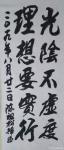 光陰不虛度
理想要實行
二〇〇九年八月廿二日